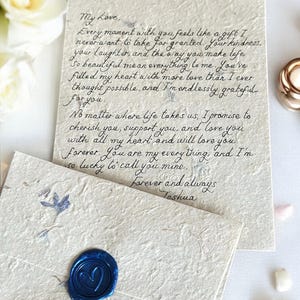 My Love,
Every moment with you feels like a gift I
never want to take for granted. Your kindness,
your laughter, and the way you make life
so beautiful mean everything to me. You've
filled my heart with more love than I ever
thought possible, and I'm endlessly grateful
for you.
No matter where life takes us, I promise to
cherish you, support you, and love you
with all my heart and will love you
forever. You are my everything, and I'm
so lucky to call you mine.
Forever and always
Joshua